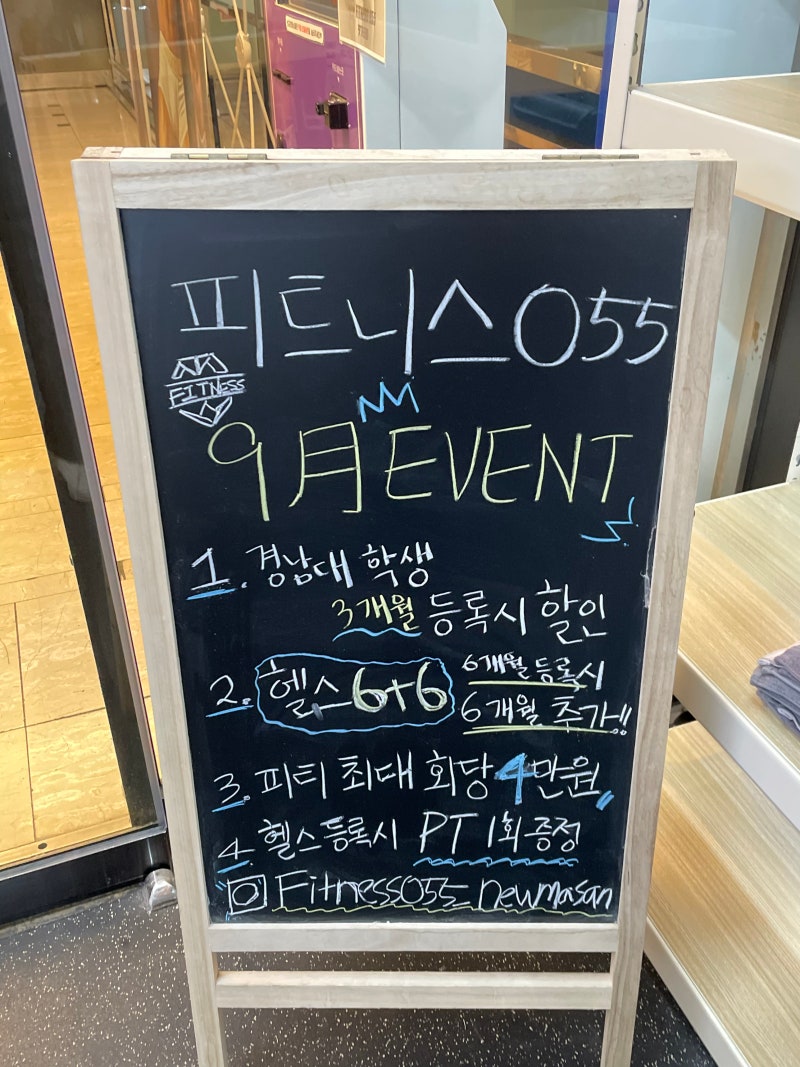 피트니스 055
FITNESS
9月 EVENT
1. 경남대 학생
3개월 등록시 할인
2. 헬스 6+6
6개월 등록시
6개월 추가!!
3. 피티 최대 회당 4만원
4. 헬스 등록시 PT 1회 증정
Fitness055_newmasan